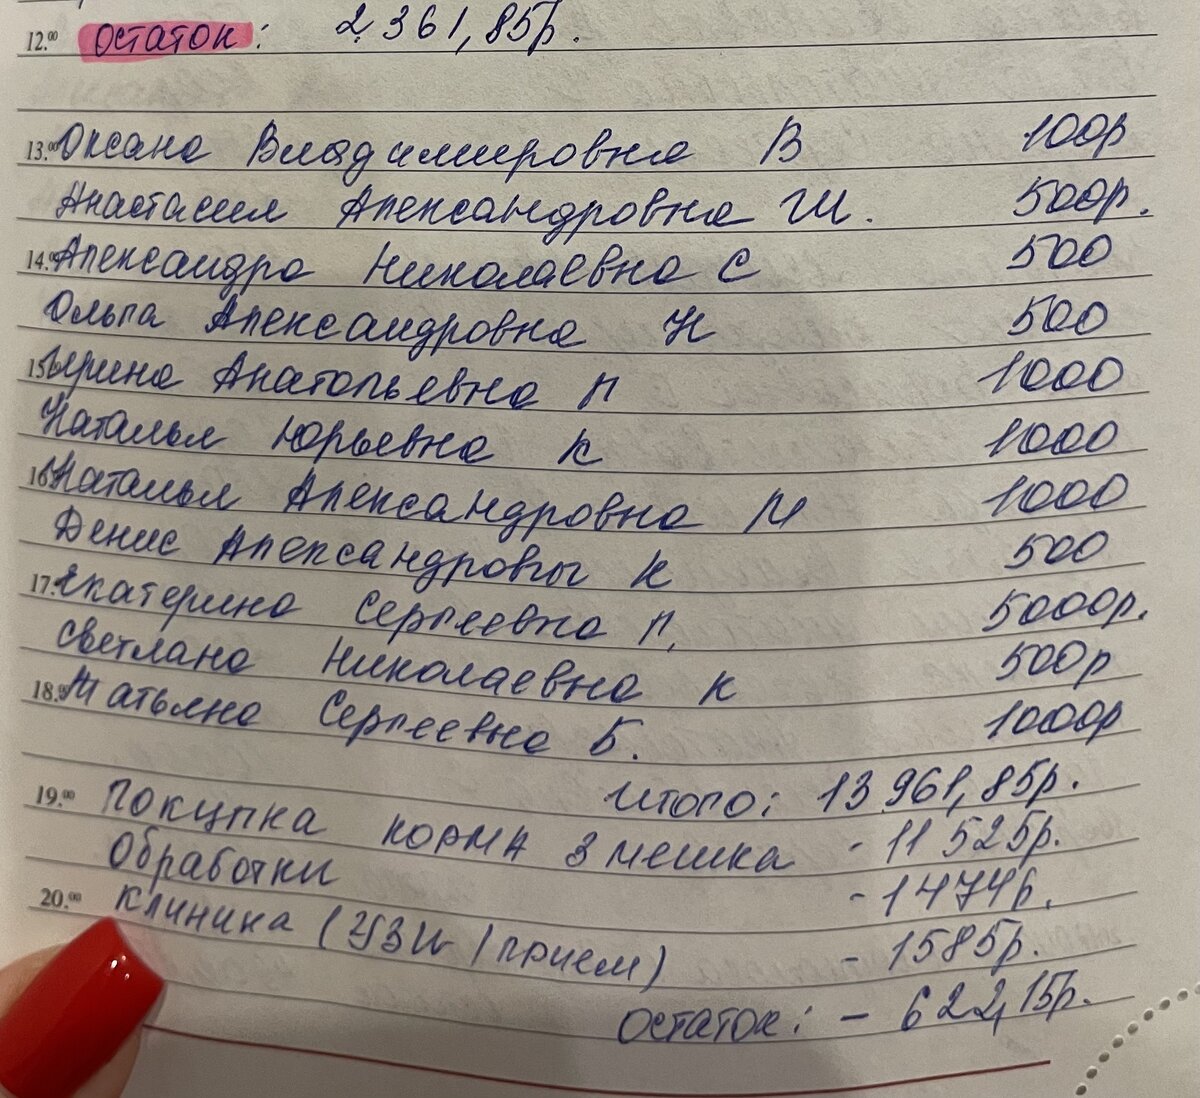 12.00 Остаток: 2 361,85р.
13.00 Оксана Владимировна В 100р
Анастасия Александровна Ш. 500р.
14.00 Александра Николаевна С 500
Ольга Александровна Н 500
15.00 Ирина Анатольевна П 1000
Наталья Юрьевна К 1000
16.00 Наталья Александровна М 1000
Денис Александровы К 500
17.00 Екатерина Сергеевна П. 5000р.
Светлана Николаевна К 500р
18.00 Татьяна Сергеевна Б. 1000р
Итого: 13 961,85р.
19.00 Покупка корма 3 мешка - 11 525р.
Обработки - 1474р.
20.00 Клиника (УЗИ/прием) - 1585р.
Остаток: - 622,15р.